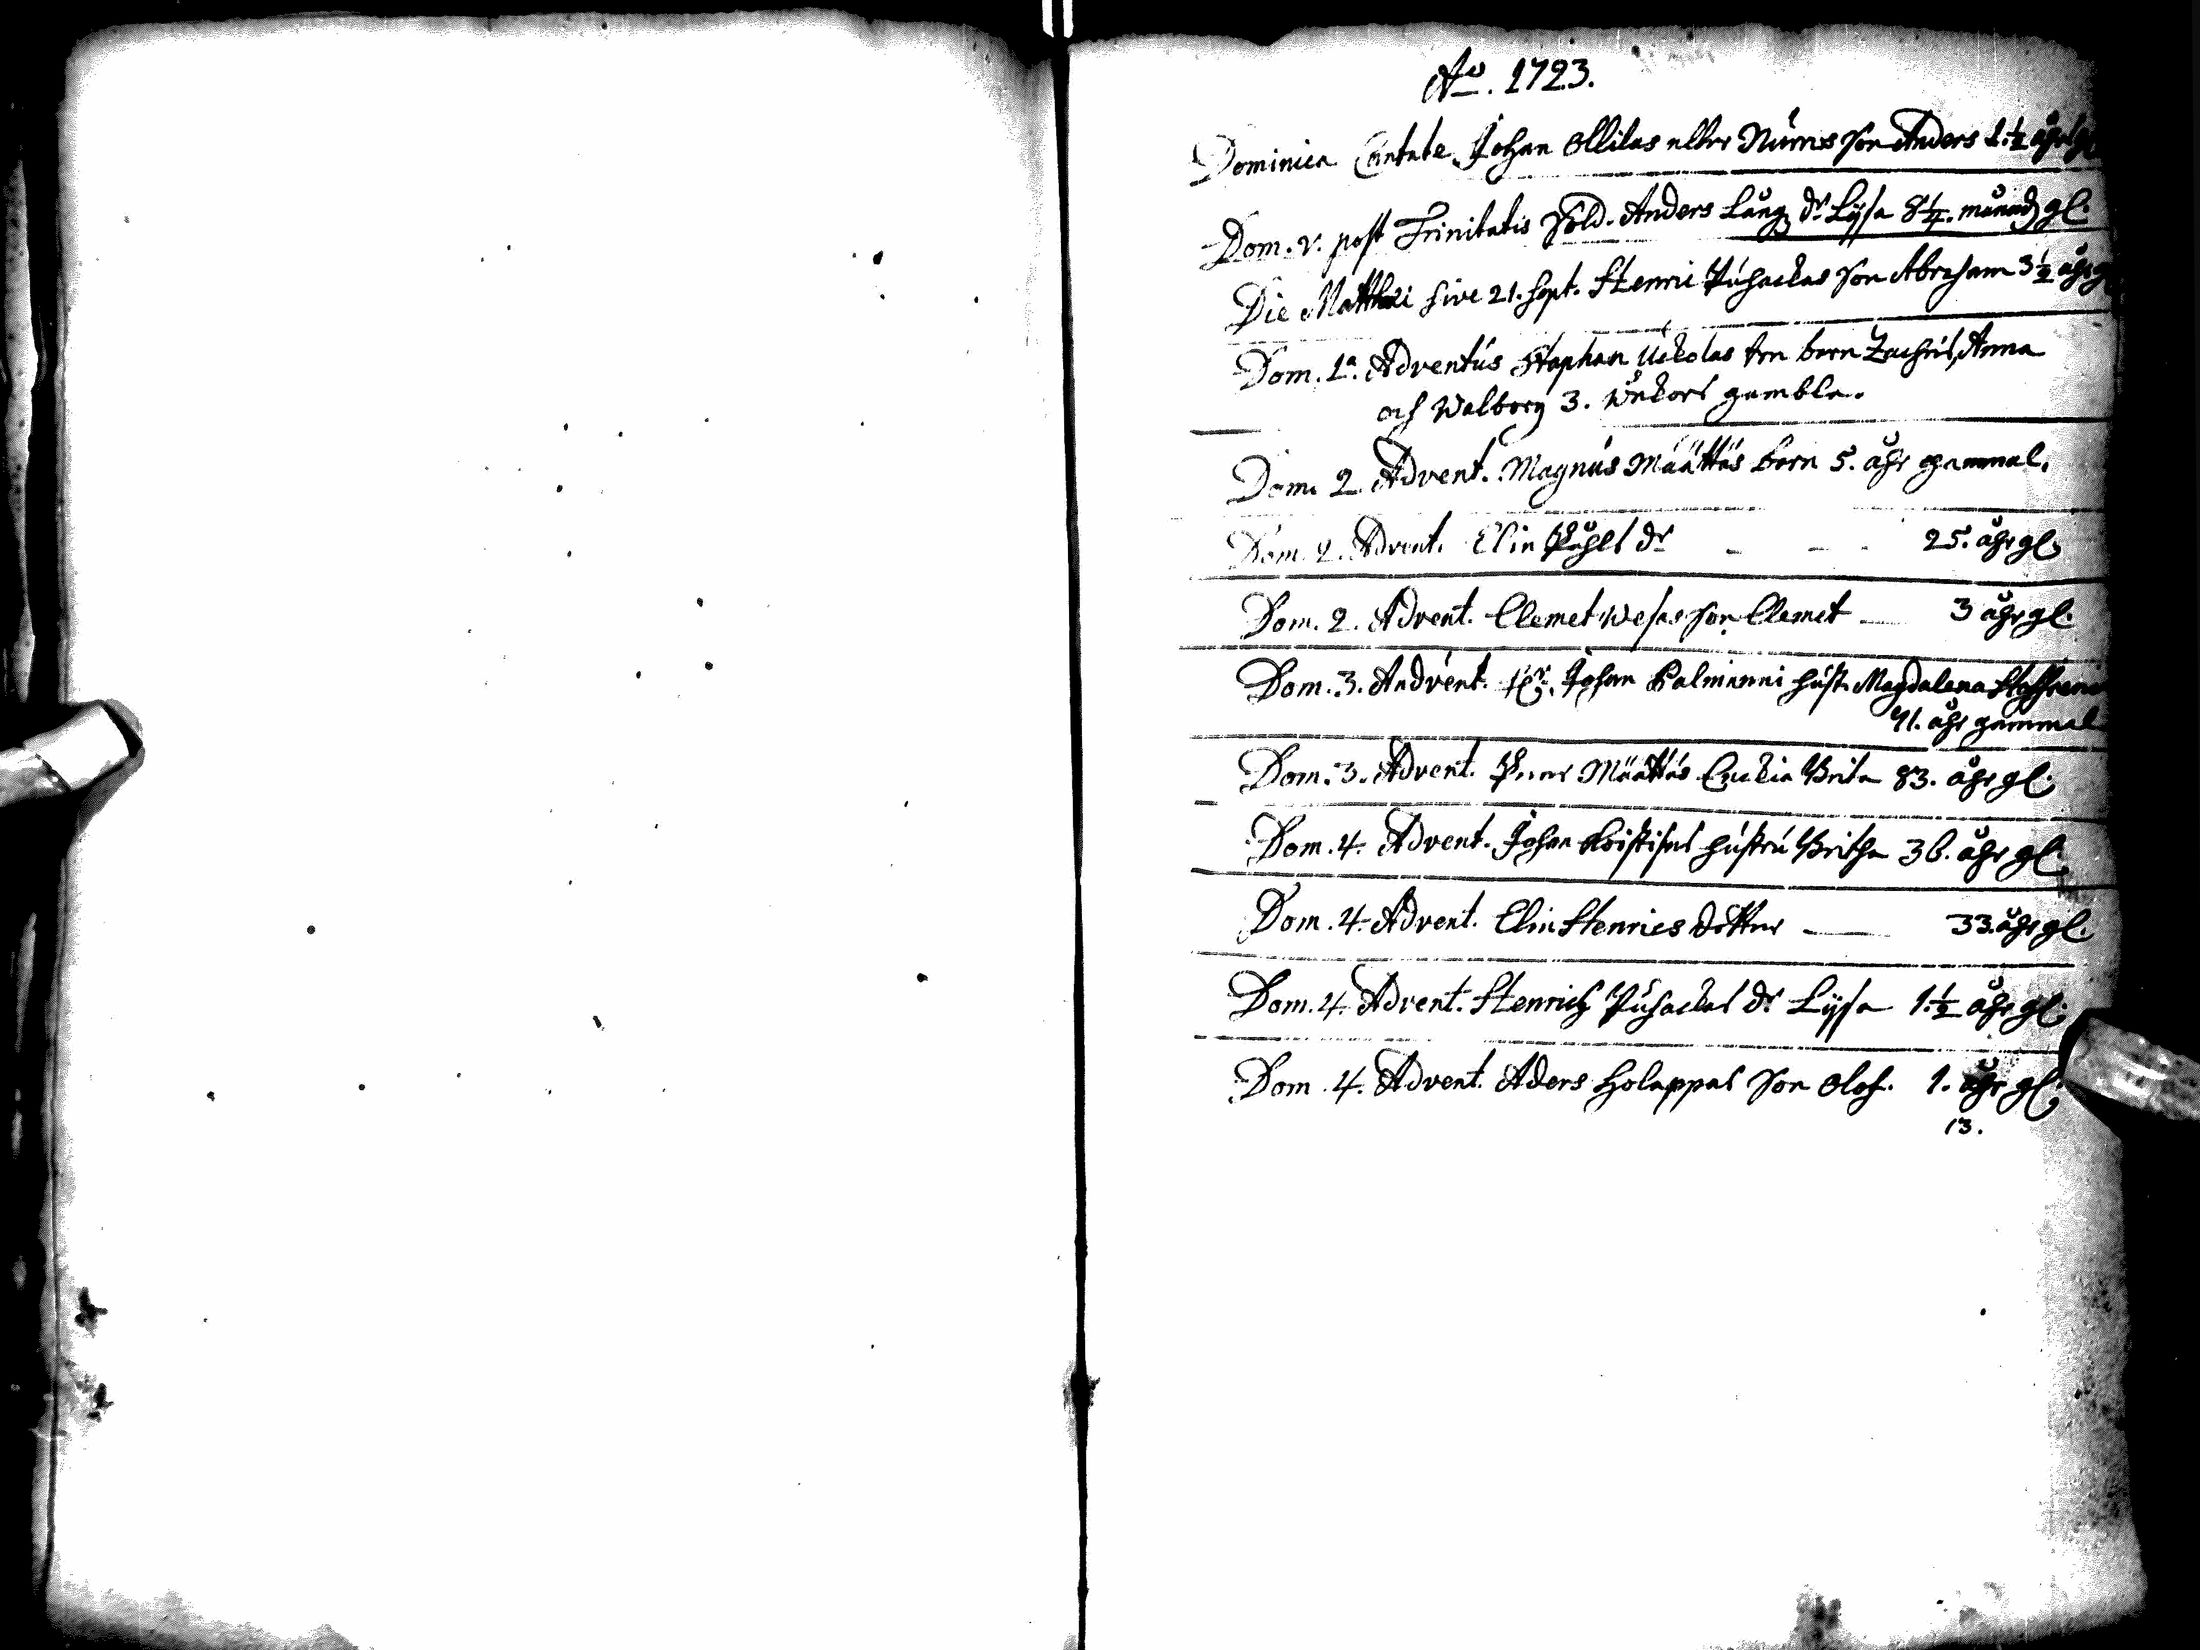 Ao. 1723.
Dominica Cantate Johan Ollilas eller Nurms Son Anders 1.½ åhr
Dom. v. post Trinitatis Sold. Anders Lång dr Lysa 8¼. månad gl.
Die Matthæi sive 21. Sept. Henric Puhackas Son Abraham 3½ åhr
Dom. 1a. Adventus Staphan Uckolas tre barn Zachris, Anna
och Walborg 3. wekors gambla.
Dom. 2. Advent. Magnus Määttäs barn 5. åhr gammal.
Dom. 2. Advent. Elin Påhls dr 25. åhr gl.
Dom. 2. Advent. Clemet Wesas Son Clemet 3 åhr gl.
Dom. 3. Andvent. Johan Palmanni hust. Magdalena
41. åhr gammal
Dom. 3. Advent. Määttäs Enckia Brita 83. åhr gl.
Dom. 4. Advent. Johan hustru Britha 36. åhr gl.
Dom. 4. Advent. Elin Henrics dotter 33. åhr gl.
Dom. 4. Advent. Henrich Puhackas dr Lysa 1.½ åhr gl.
Dom. 4. Advent. Aders Holappas Son Olof. 1. åhr gl.
13.